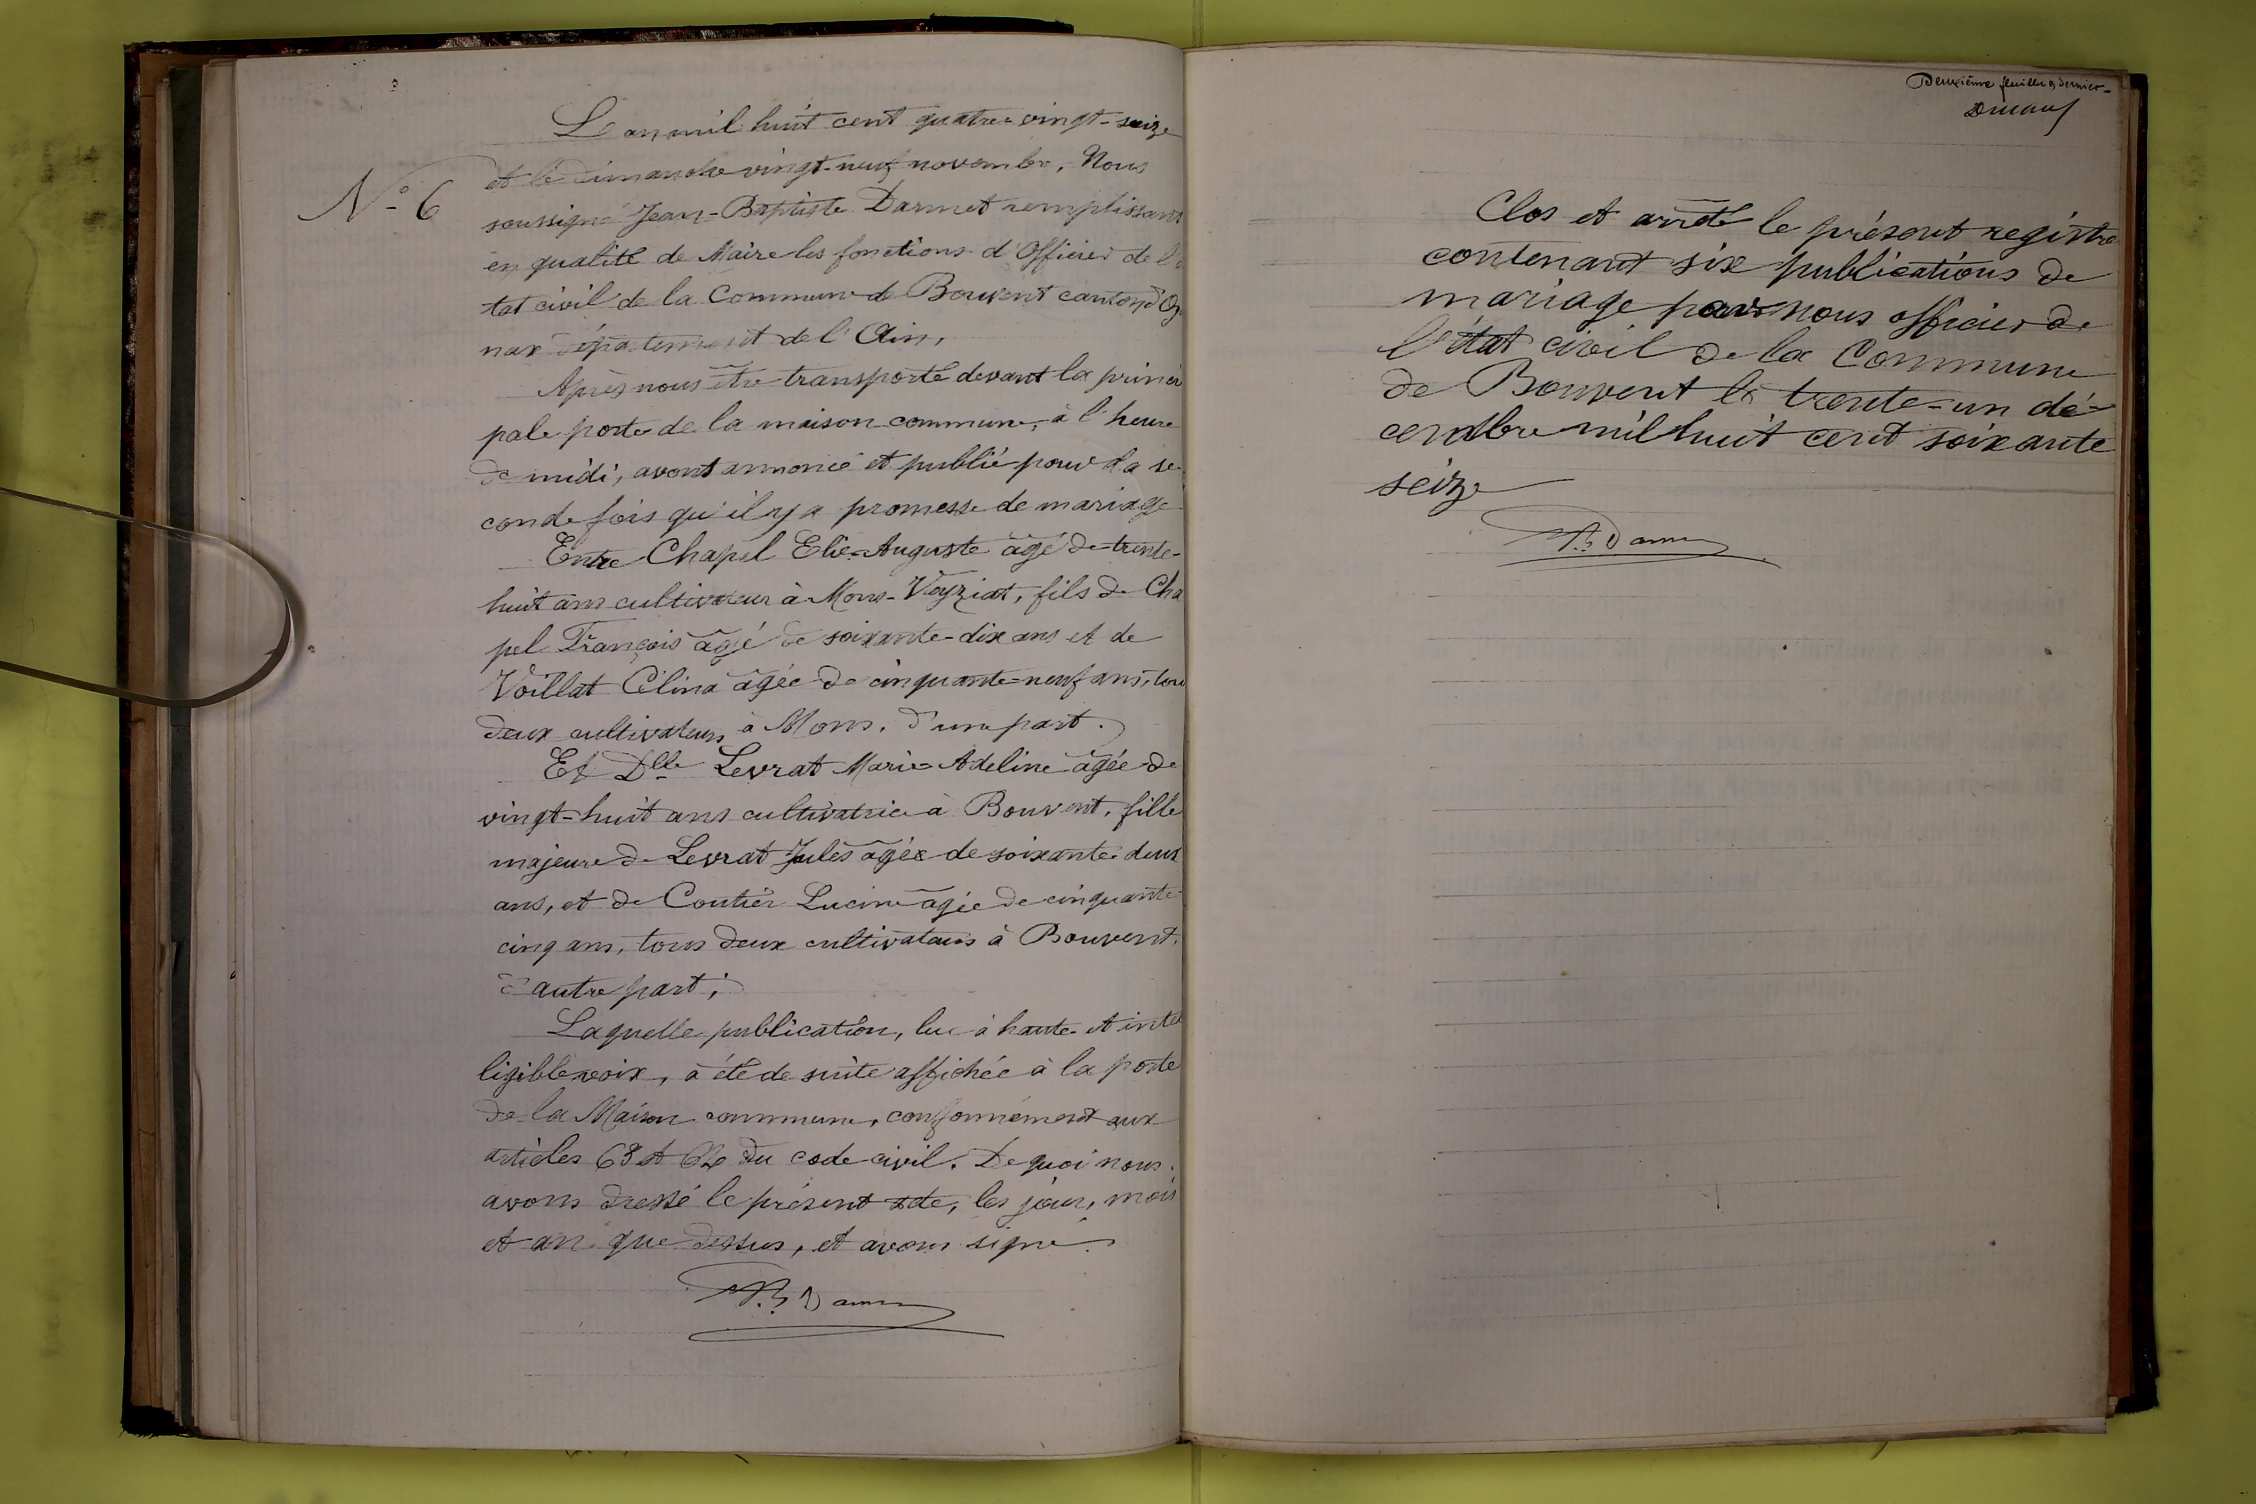 Le an mil huit cent quatre-vingt-seize
N° 6
et le dimanche vingt-neuf novembre, Nous
soussigné Jean-Baptiste Darmet remplissant
en qualité de Maire les fonctions d'Officier de l'é
tat civil de la Commune de Bouvent canton d'Oy
nax département de l'Ain,
Après nous être transporté devant la princi
pale porte de la maison commune, à l'heure
de midi, avont annoncé et publié pour la se
conde fois qu'il y a promesse de mariage
Entre Chapel Elie-Auguste âgé de trente-
huit ans cultivateur à Mons-Veyziat, fils de Cha
pel François âgé de soixante-dix ans et de
Voillat Célina âgée de cinquante-neuf ans, tous
deux cultivateurs à Mons, d'une part.
Et Dlle Levrat Marie-Adeline âgée de
vingt-huit ans cultivatrice à Bouvent, fille
majeure de Levrat Jules âgée de soixante-deux
ans, et de Coutier Lucine âgée de cinquante-
cinq ans, tous deux cultivateurs à Bouvent.
d'autre part;
Laquelle publication, lue à haute et intel
ligible voix, à été de suite affichée à la porte
de la Maison commune, conformément aux
articles 63 et 64 du code civil. De quoi nous
avons dressé le présent acte, les jour, mois
et an que dessus, et avons signé.
JB Darmet
Deuxième feuillet & dernier
Clos et arrêté le présent registre
contenant six publications de
mariage par nous officier de
l'état civil de la Commune
de Bouvent le trente-un dé-
cembre mil huit cent soixante
seize
JB Darmet